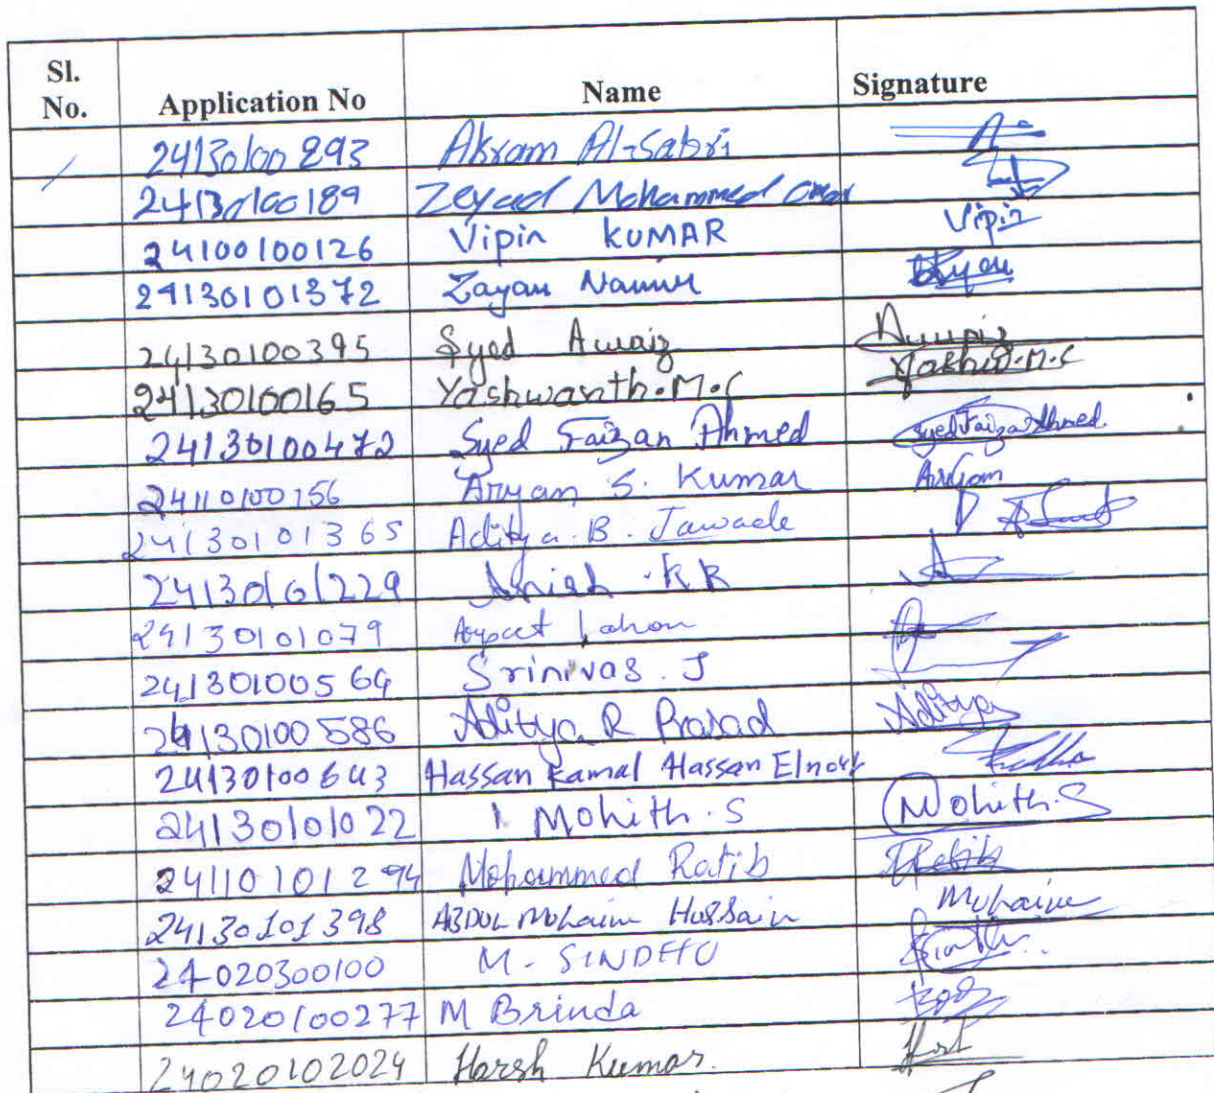 Sl. No. Application No Name Signature
24130100293 Akram Al-Sabri
24130100189 Zeyad Mohammed Omar
24100100126 Vipin KUMAR Vipin
24130101372 Zayan
24130100395 Syed Awaiz
24130100165 Yashwanth.M.C Yashw.M.C
24130100472 Syed Faizan Ahmed Syed Faizan Ahmed
24110100156 Aryan S. Kumar Aryan
24130101365 Aditya.B.Jawade
24130101229 Anish.KR
24130101079 Lahon
24130100564 Srinivas.J
24130100586 Aditya R Prasad Aditya
24130100643 Hassan Kamal Hassan
24130101022 Mohith.S Mohith.S
24110101294 Mohammed Ratib Ratib
24130101398 ABDUL Mohaim Hussain
24020300100 M. SINDHU
24020100277 M Brinda
24020102024 Harsh Kumar.